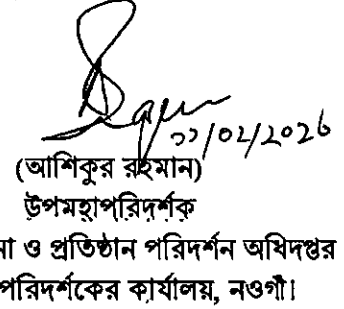 ২২/০২/২০২৬
(আশিকুর রহমান)
উপমহাপরিদর্শক
না ও প্রতিষ্ঠান পরিদর্শন অধিদপ্তর
পরিদর্শকের কার্যালয়, নওগাঁ।